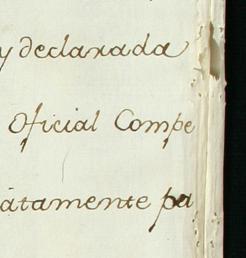 y declarada
Oficial Compe
átamente pa